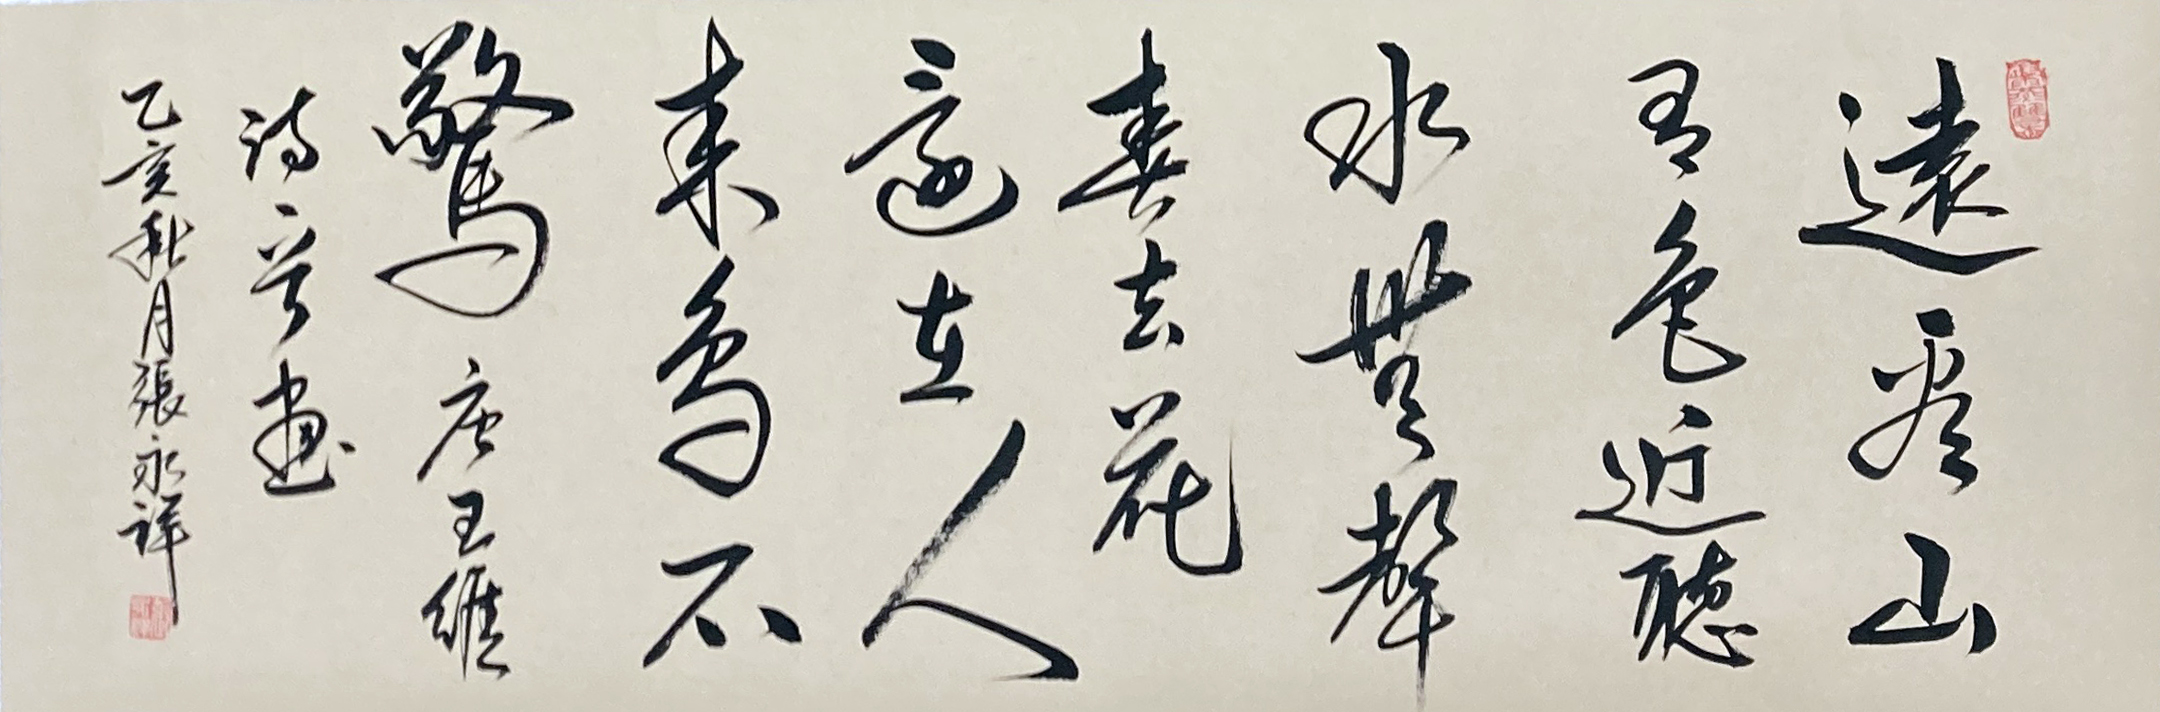 遠看山
有色近聽
水無聲
春去花
還在人
来鳥不
驚 唐王維
詩意画
乙亥秋月張永祥